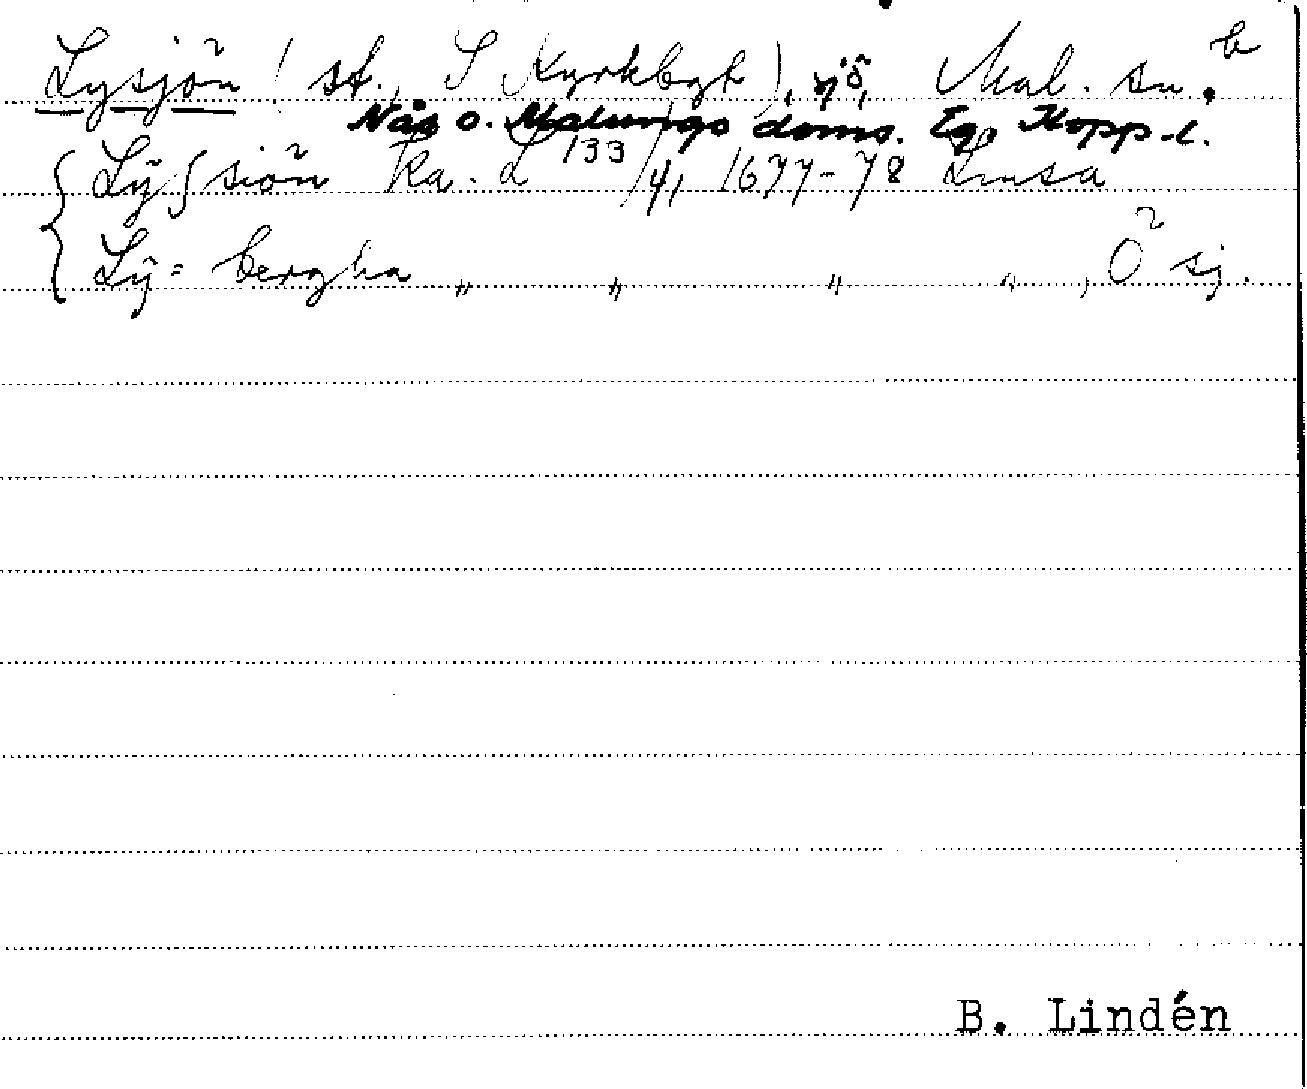 Lysjön (st., S Kyrkbygd), sjö, Mal. sn. b
Nås o. Malungs doms. Eg. Kopp-l.
Lÿssiön Ka. L 133/4, 1677-78 Limsa
Lÿ= bergha " " " " , Ö sj.
B. Lindén